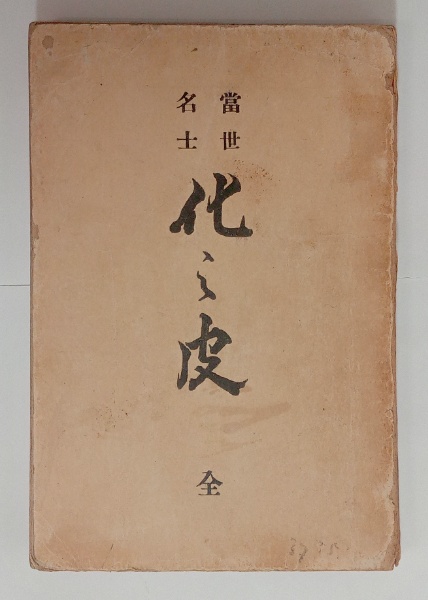 當世
名士
化之皮
全